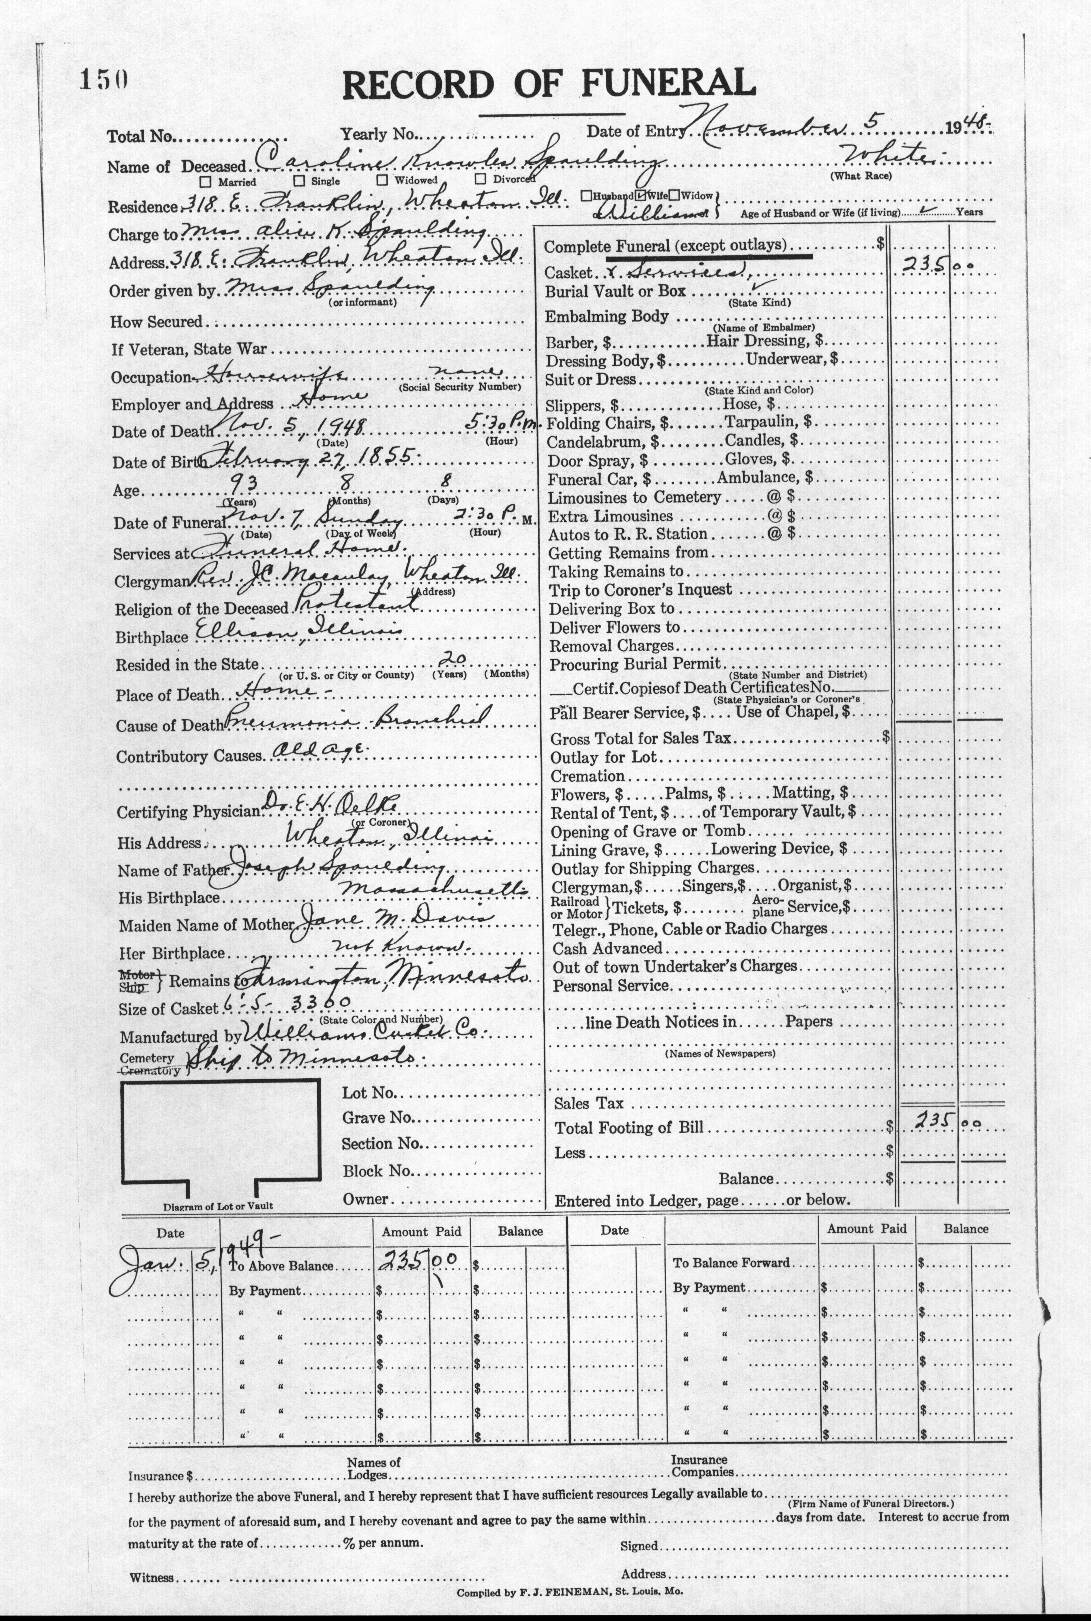 150
RECORD OF FUNERAL
Total No. Yearly No. Date of Entry November 5 1948-
Name of Deceased Caroline Knowles Spaulding White
(What Race)
Married Single Widowed Divorced
Residence 318 E. Franklin, Wheaton Ill. Husband Wife Widow of William Age of Husband or Wife (if living) Years
Charge to Miss Alice K. Spaulding
Address 318 E. Franklin, Wheaton Ill.
Order given by Miss Spaulding
(or informant)
How Secured
If Veteran, State War
Occupation Housewife none
(Social Security Number)
Employer and Address Home
Date of Death Nov. 5, 1948 5:30 P.m.
(Date) (Hour)
Date of Birth February 27, 1855
Age 93 8 8
(Years) (Months) (Days)
Date of Funeral Nov. 7, Sunday 2:30 P. M.
(Date) (Day of Week) (Hour)
Services at Funeral Home
Clergyman Rev. J.C. Macaulay, Wheaton Ill.
(Address)
Religion of the Deceased Protestant
Birthplace Ellison, Illinois
Resided in the State 20
(or U. S. or City or County) (Years) (Months)
Place of Death Home -
Cause of Death Pneumonia Bronchial
Contributory Causes Old age.
Certifying Physician Dr. E. H. Oelke
(or Coroner)
His Address Wheaton, Illinois
Name of Father Joseph Spaulding
His Birthplace Massachusetts
Maiden Name of Mother Jane M. Davis
Her Birthplace not Known.
Motor Ship } Remains to Farmington, Minnesota
Size of Casket 6'-5- 3300
(State Color and Number)
Manufactured by Williams Casket Co.
Cemetery Crematory } Ship to Minnesota.
Lot No.
Grave No.
Section No.
Block No.
Owner
Diagram of Lot or Vault
Complete Funeral (except outlays) $
Casket & Services, 235 00
Burial Vault or Box
(State Kind)
Embalming Body
(Name of Embalmer)
Barber, $ Hair Dressing, $
Dressing Body, $ Underwear, $
Suit or Dress
(State Kind and Color)
Slippers, $ Hose, $
Folding Chairs, $ Tarpaulin, $
Candelabrum, $ Candles, $
Door Spray, $ Gloves, $
Funeral Car, $ Ambulance, $
Limousines to Cemetery @ $
Extra Limousines @ $
Autos to R. R. Station @ $
Getting Remains from
Taking Remains to
Trip to Coroner's Inquest
Delivering Box to
Deliver Flowers to
Removal Charges
Procuring Burial Permit
(State Number and District)
Certif. Copies of Death Certificates No.
(State Physician's or Coroner's
Pall Bearer Service, $ Use of Chapel, $
Gross Total for Sales Tax $
Outlay for Lot
Cremation
Flowers, $ Palms, $ Matting, $
Rental of Tent, $ of Temporary Vault, $
Opening of Grave or Tomb
Lining Grave, $ Lowering Device, $
Outlay for Shipping Charges
Clergyman, $ Singers, $ Organist, $
Railroad or Motor } Tickets, $ Aero-plane Service, $
Telegr., Phone, Cable or Radio Charges
Cash Advanced
Out of town Undertaker's Charges
Personal Service
line Death Notices in Papers
(Names of Newspapers)
Sales Tax
Total Footing of Bill $ 235 00
Less $
Balance $
Entered into Ledger, page or below.
Date Amount Paid Balance Date Amount Paid Balance
Jan. 5, 1949- To Above Balance 235 00 $ To Balance Forward $
By Payment $ $ By Payment $ $
" " $ $ " " $ $
" " $ $ " " $ $
" " $ $ " " $ $
" " $ $ " " $ $
" " $ $ " " $ $
" " $ $ " " $ $
Insurance $ Names of Lodges Insurance Companies
I hereby authorize the above Funeral, and I hereby represent that I have sufficient resources Legally available to
(Firm Name of Funeral Directors.)
for the payment of aforesaid sum, and I hereby covenant and agree to pay the same within days from date. Interest to accrue from
maturity at the rate of % per annum. Signed
Witness Address
Compiled by F. J. FEINEMAN, St. Louis, Mo.